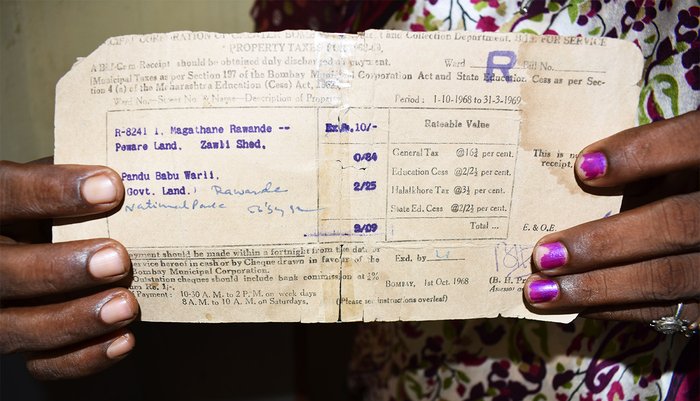 CORPORATION OF GREATER BOM
and Collection Department, BILL FOR SERVICE
PROPERTY TAXES FOR 1968-69.
A Bill-Cum Receipt should be obtained duly discharged on payment. Ward R Bill No.
(Municipal Taxes as per Section 197 of the Bombay Municipal Corporation Act and State Education Cess as per Sec-
tion 4 (a) of the Maharashtra Education (Cess) Act, 1962
Ward No—Street No. & Name—Description of Property Period: 1-10-1968 to 31-3-1969
R-8241 1, Magathane Rawande --
Peware Land. Zawli Shed.
Pandu Babu Warli.
(Govt. Land.) Rawande
National Park
Rs. 10/-
0/84
2/25
Rateable Value
General Tax @16½ per cent.
Education Cess @2/2½ per cent.
Halalkhore Tax @3½ per cent.
State Ed. Cess @2/2½ per cent.
Total ...
This is
receipt.
E. & O.E.
ayment should be made within a fortnight from the date of
service hereof in cash or by Cheque drawn in favour of the
Bombay Municipal Corporation.
Outstation cheques should include bank commission at
um Re. 1/-
Payment: 10-30 A.M. to 2 P.M. on week days
8 A.M. to 10 A.M. on Saturdays.
Exd. by
BOMBAY, 1st Oct. 1968
(Please see instructions overleaf)
(B. H.
Assessor